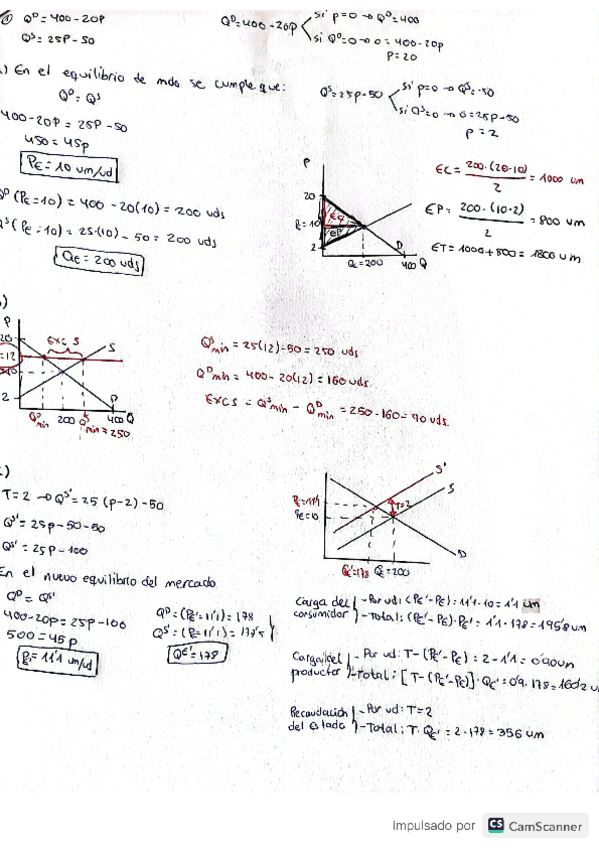 ① Q^D = 400 - 20P
Q^S = 25P - 50
Q^D = 400 - 20P
si p = 0 → Q^D = 400
si Q^D = 0 → 0 = 400 - 20p
P = 20
) En el equilibrio de mdo se cumple que:
Q^D = Q^S
400 - 20P = 25P - 50
450 = 45P
P_E = 10 um/ud
Q^D (P_E = 10) = 400 - 20(10) = 200 uds
Q^S (P_E = 10) = 25(10) - 50 = 200 uds
Q_E = 200 uds
Q^S = 25P - 50
si p = 0 → Q^S = -50
si Q^S = 0 → 0 = 25p - 50
p = 2
P
20
P_E = 10
2
EC
EP
D
Q_E = 200
400 Q
EC = 200 · (20 - 10) / 2 = 1000 um
EP = 200 · (10 - 2) / 2 = 800 um
ET = 1000 + 800 = 1800 um
)
P
20
EXC S
S
= 12
10
2
D
Q^D min
200
Q^S min = 250
400 Q
Q^S min = 25(12) - 50 = 250 uds
Q^D min = 400 - 20(12) = 160 uds.
EXC S = Q^S min - Q^D min = 250 - 160 = 90 uds.
)
T = 2 → Q^S' = 25 (p - 2) - 50
Q^S' = 25p - 50 - 50
Q^S' = 25P - 100
En el nuevo equilibrio del mercado
Q^D = Q^S'
400 - 20p = 25p - 100
500 = 45p
P_E = 11'1 um/ud
Q^D = (P_E' = 11'1) = 178
Q^S = (P_E = 11'1) = 177'5
Q_E' = 178
S'
S
P_E' = 11'1
P_E = 10
T = 2
D
Q_E' = 178
Q_E = 200
Carga del consumidor
- Por ud: (P_E' - P_E) = 11'1 - 10 = 1'1 um
- Total: (P_E' - P_E) · P_E' = 1'1 · 178 = 195'8 um
Carga del productor
- Por ud: T - (P_E' - P_E) = 2 - 1'1 = 0'90 um
- Total: [T - (P_E' - P_E)] · Q_E' = 0'9 · 178 = 160'2 u
Recaudación del Estado
- Por ud: T = 2
- Total: T · Q_E' = 2 · 178 = 356 um
Impulsado por CS CamScanner